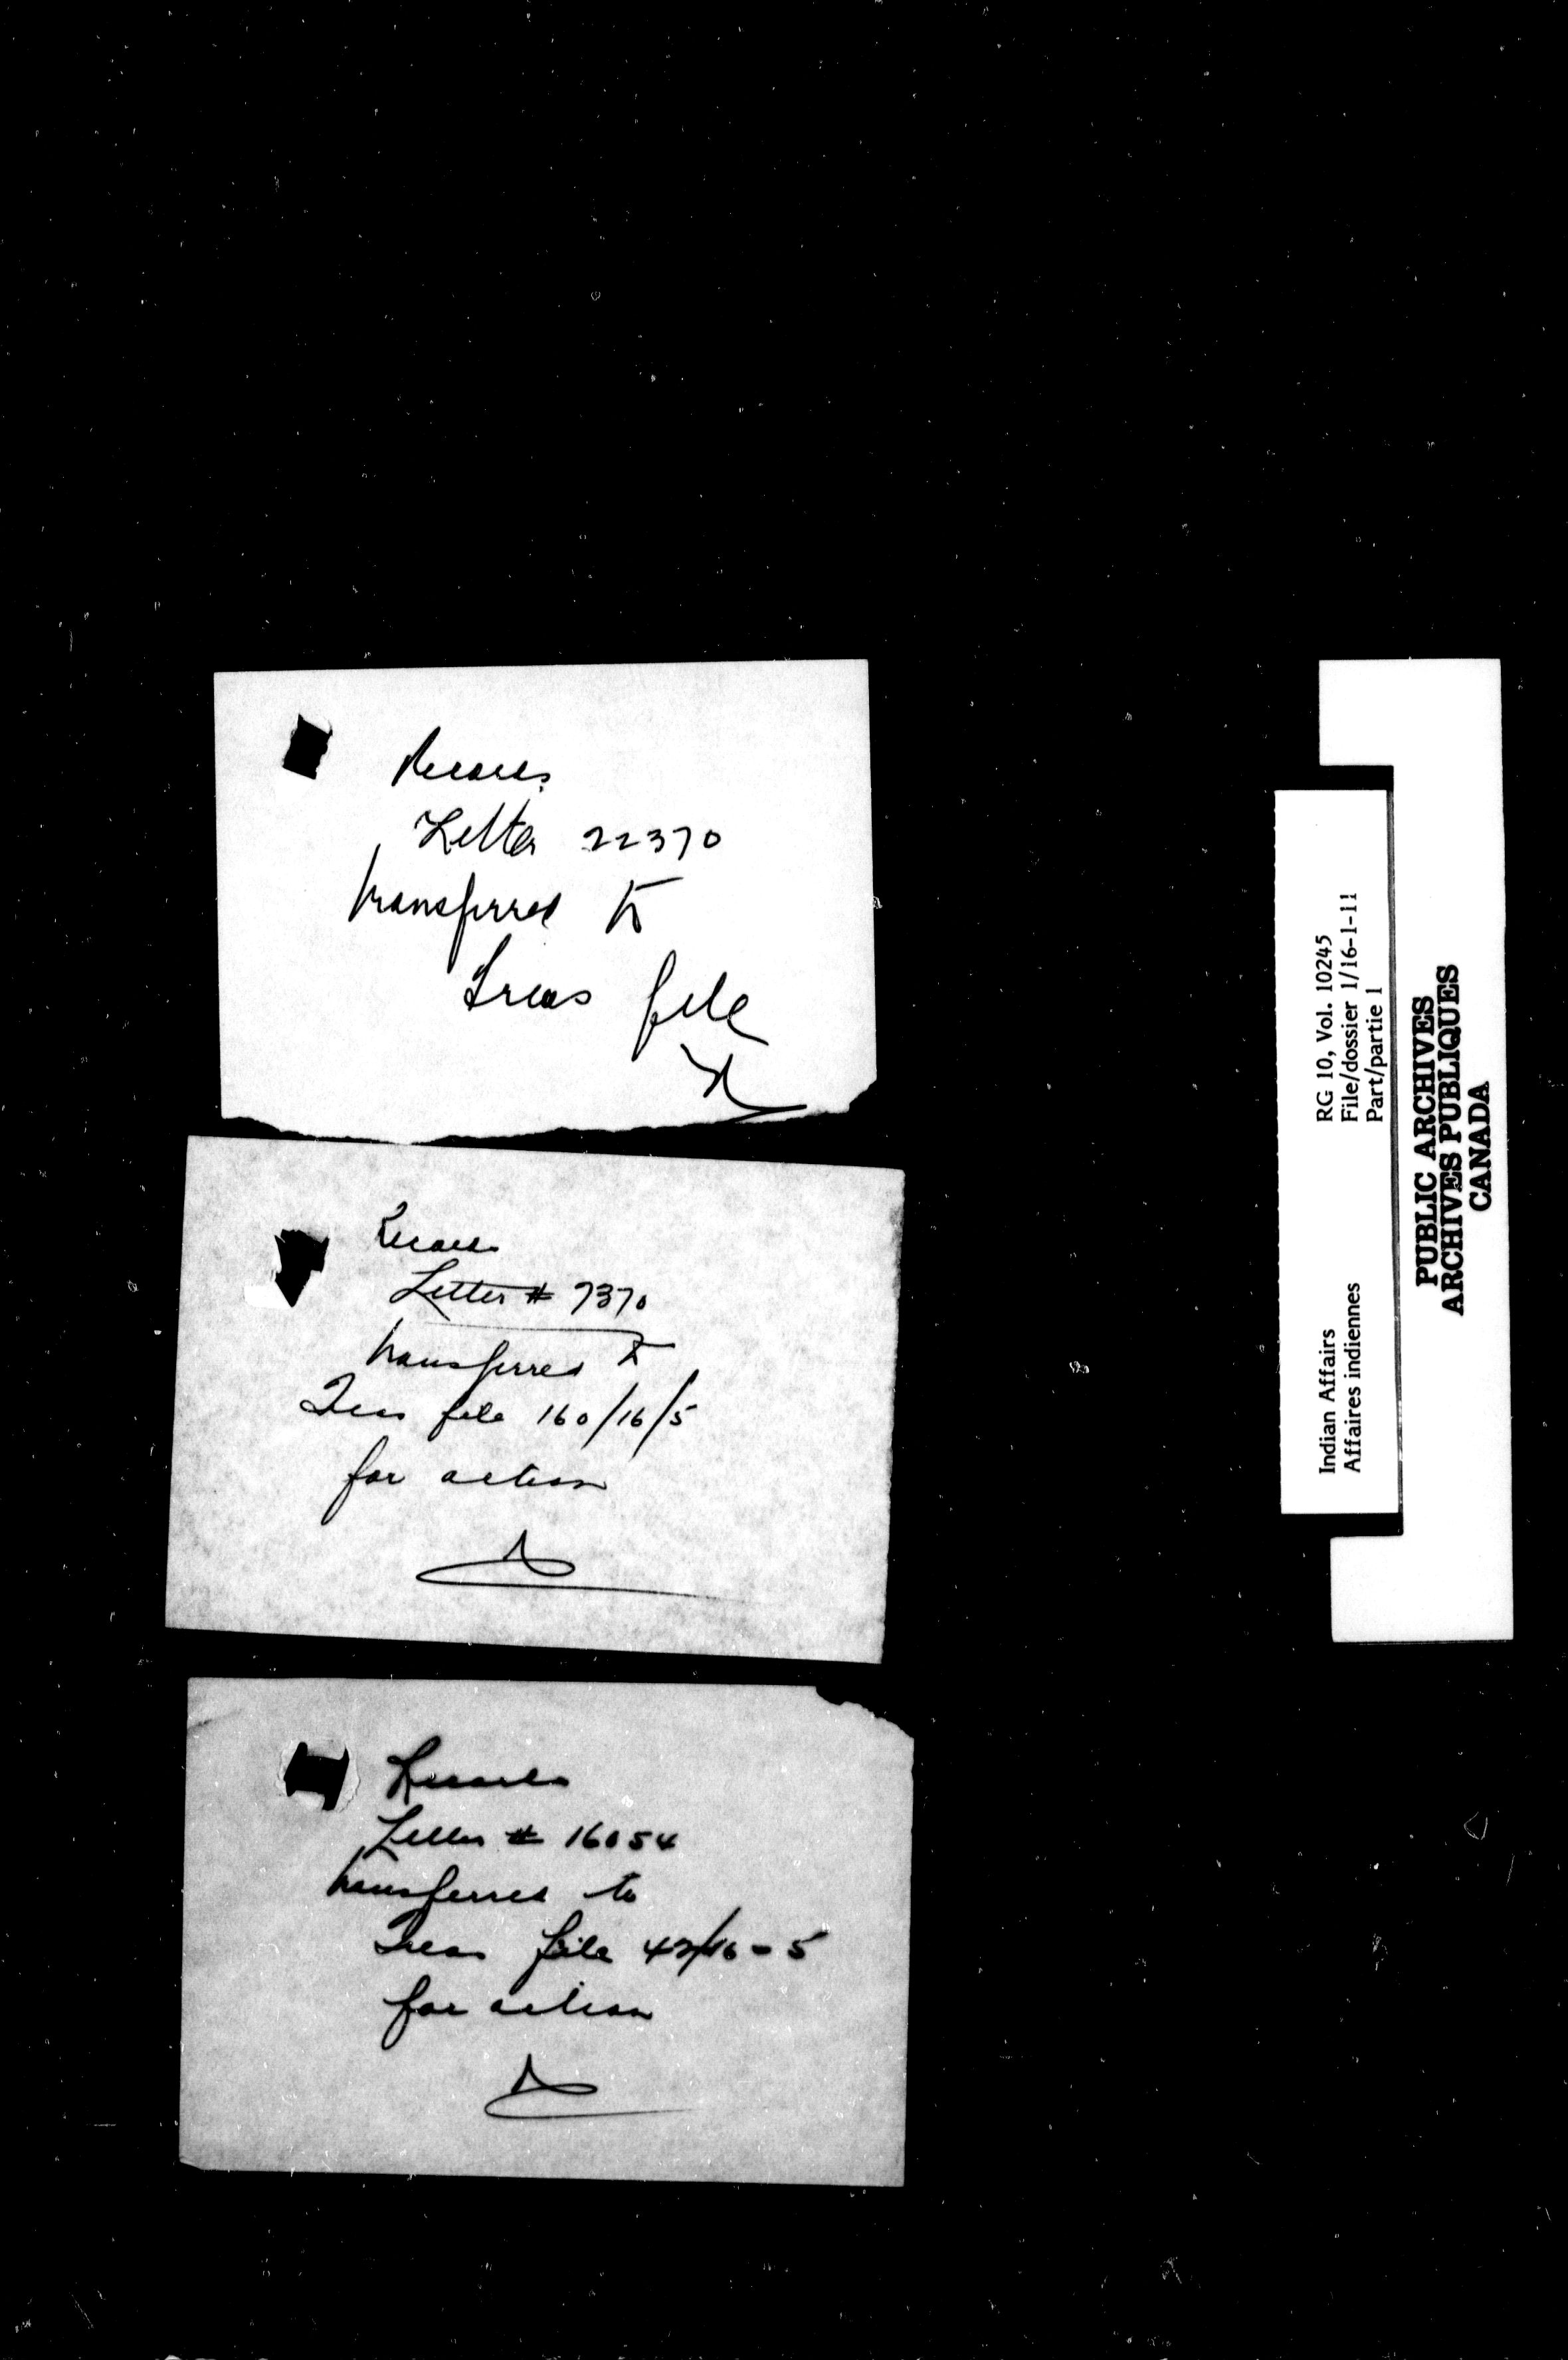 Records
Letter 22370
transferred to
Treas file
Records
Letter # 7370
transferred to
Treas file 160/16/5
for action
Records
Letter # 16054
transferred to
Treas file 42/16-5
for action
Indian Affairs
Affaires indiennes
RG 10, Vol. 10245
File/dossier 1/16-1-11
Part/partie 1
PUBLIC ARCHIVES
ARCHIVES PUBLIQUES
CANADA